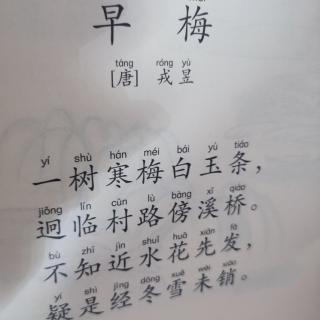 méi
早 梅
táng róng yù
[唐] 戎昱
yí shù hán méi bái yù tiáo
一树寒梅白玉条，
jiǒng lín cūn lù bàng xī qiáo
迥临村路傍溪桥。
bù zhī jìn shuǐ huā xiān fā
不知近水花先发，
yí shì jīng dōng xuě wèi xiāo
疑是经冬雪未销。